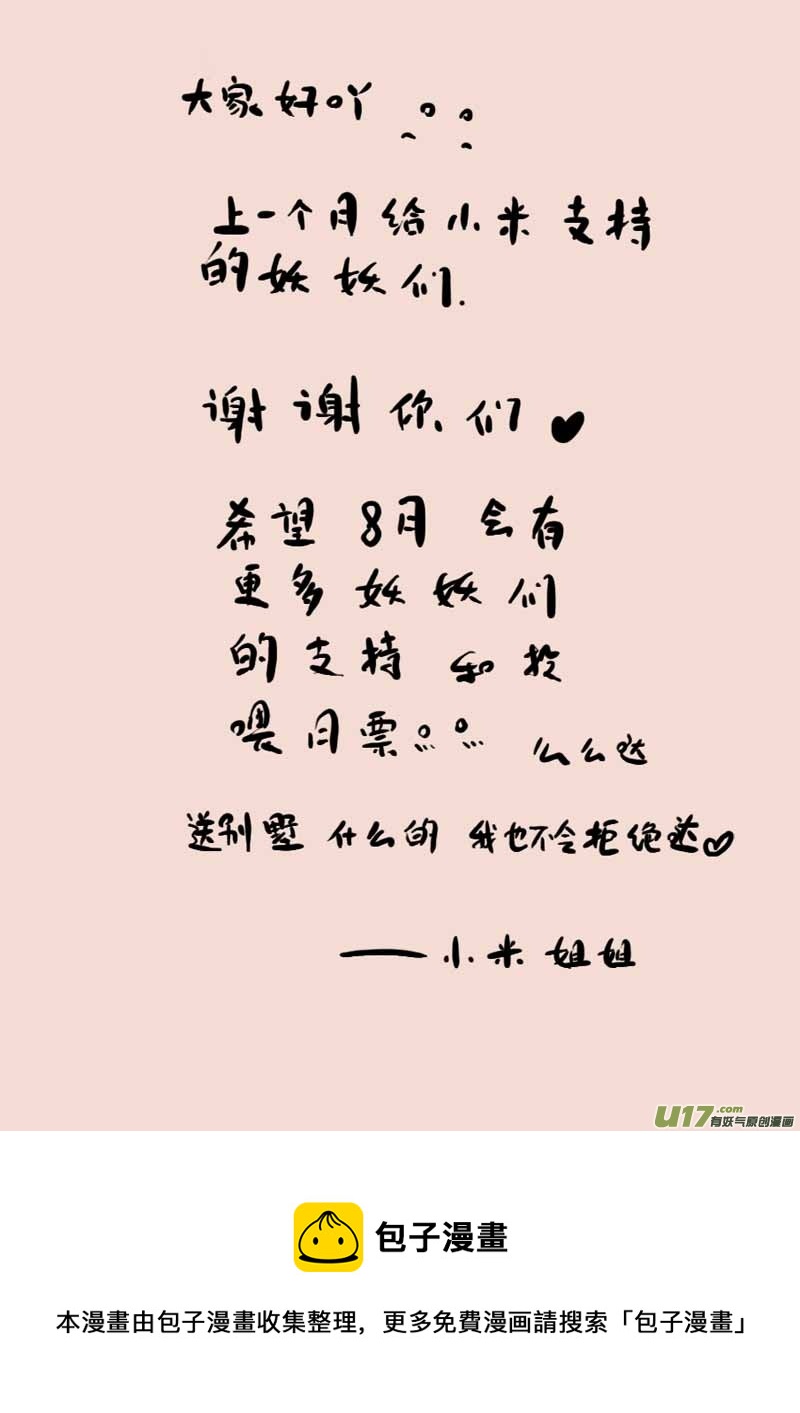 大家好吖
上一个月给小米支持
的妖妖们.
谢谢你们♥
希望8月会有
更多妖妖们
的支持和投
喂月票 么么哒
送别墅什么的 我也不会拒绝哒♡
——小米姐姐
U17.com
有妖气原创漫画
包子漫畫
本漫畫由包子漫畫收集整理，更多免費漫画請搜索「包子漫畫」